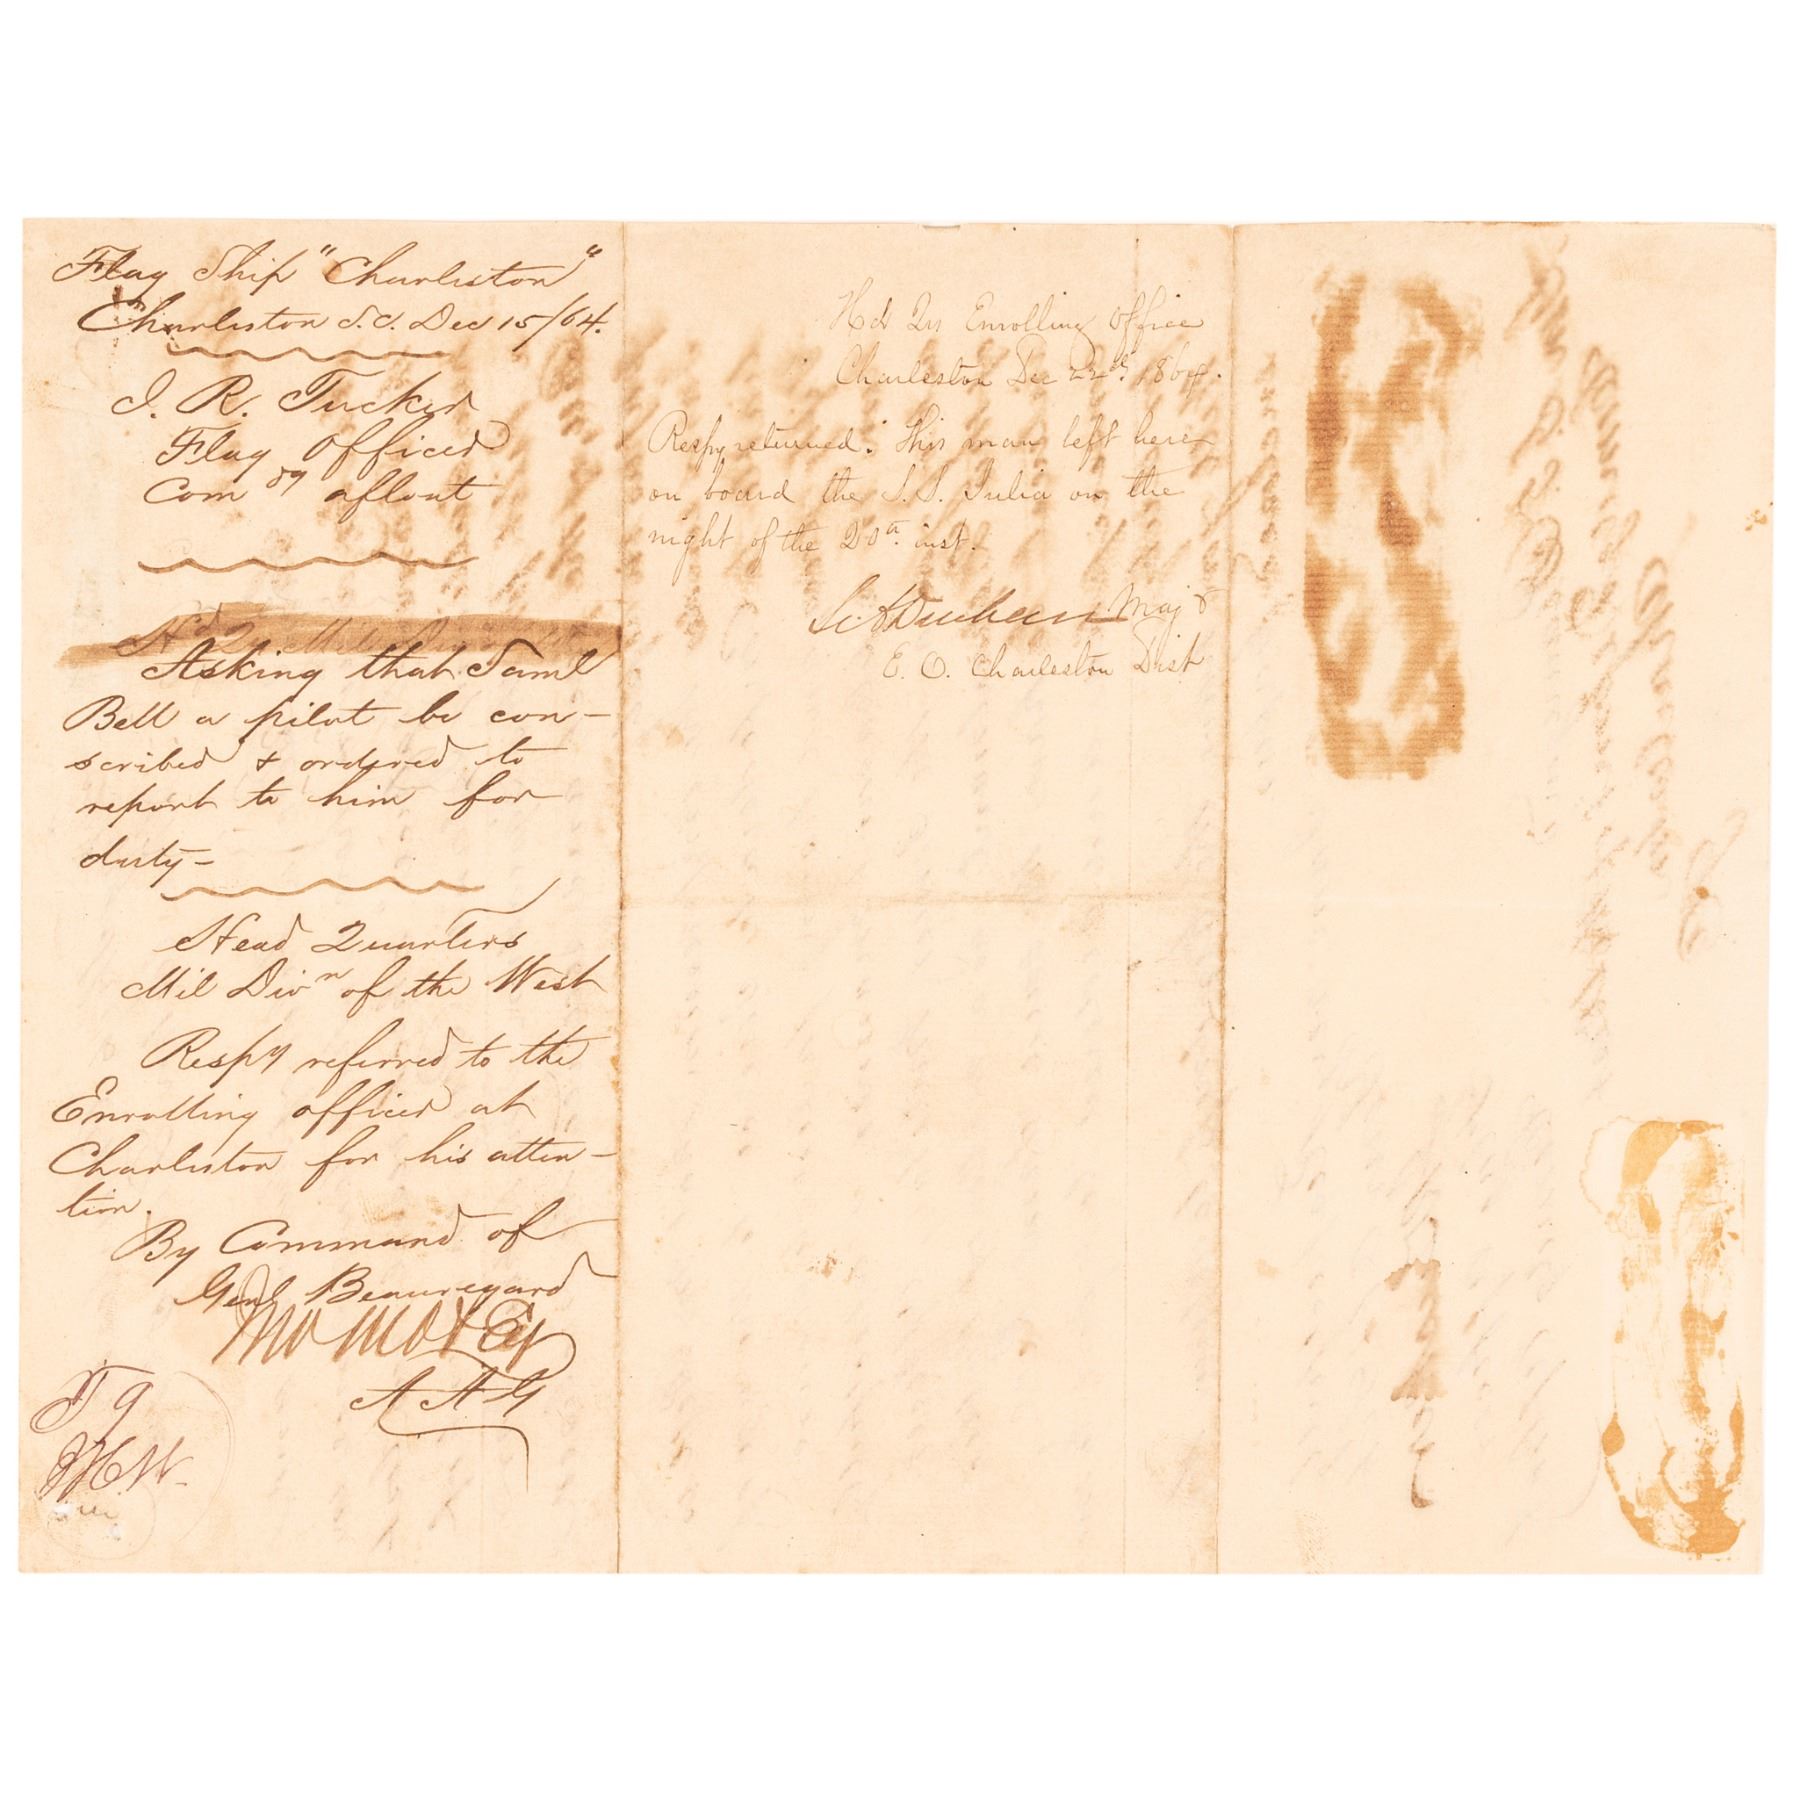 Flag Ship "Charleston"
Charleston S.C. Dec 15/64.
J. R. Tucker
Flag Officer
Comdg afloat
Hd Qr Mil
Asking that Saml
Bell a pilot be con-
scribed & ordered to
report to him for
duty-
Head Quarters
Mil Divn of the West
Respy referred to the
Enrolling officer at
Charleston for his atten-
tion.
By Command of
Genl Beauregard
A A G
Hd Qrs Enrolling Office
Charleston Dec 22d 1864.
Respy returned. This man left here
on board the S. S. Julia on the
night of the 20th inst.
Maj &
E. O. Charleston Dist